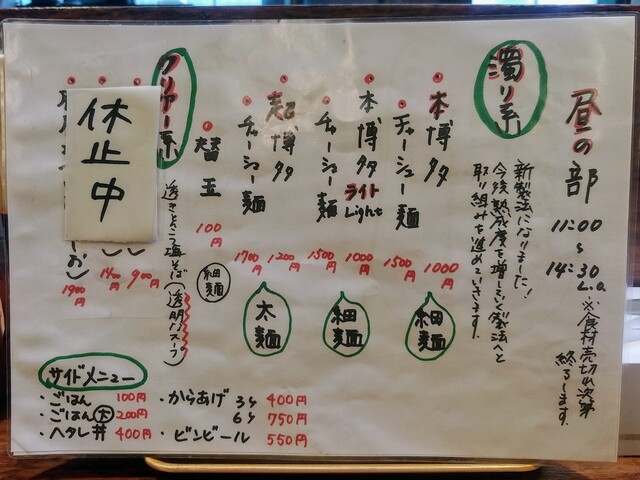 昼の部
11:00
〜
14:30
L.o.
※食材売切れ次第
終了します。
濁り系
新製法になりました!
今後、熟成度を増していく製法へと
取り組みを進めていきます。
本博多 1000円
チャーシュー麺 1500円
細麺
本博多 ライト Light 1000円
チャーシュー麺 1500円
細麺
超博多 1200円
チャーシュー麺 1700円
太麺
替玉 100円
細麺
クリアー系
透きとおる塩そば(透明スープ)
休止中
900円
1400円
1900円
サイドメニュー
・ごはん 100円
・ごはん 大 200円
・ヘタレ丼 400円
・からあげ 3ケ 400円
6ケ 750円
・ビンビール 550円